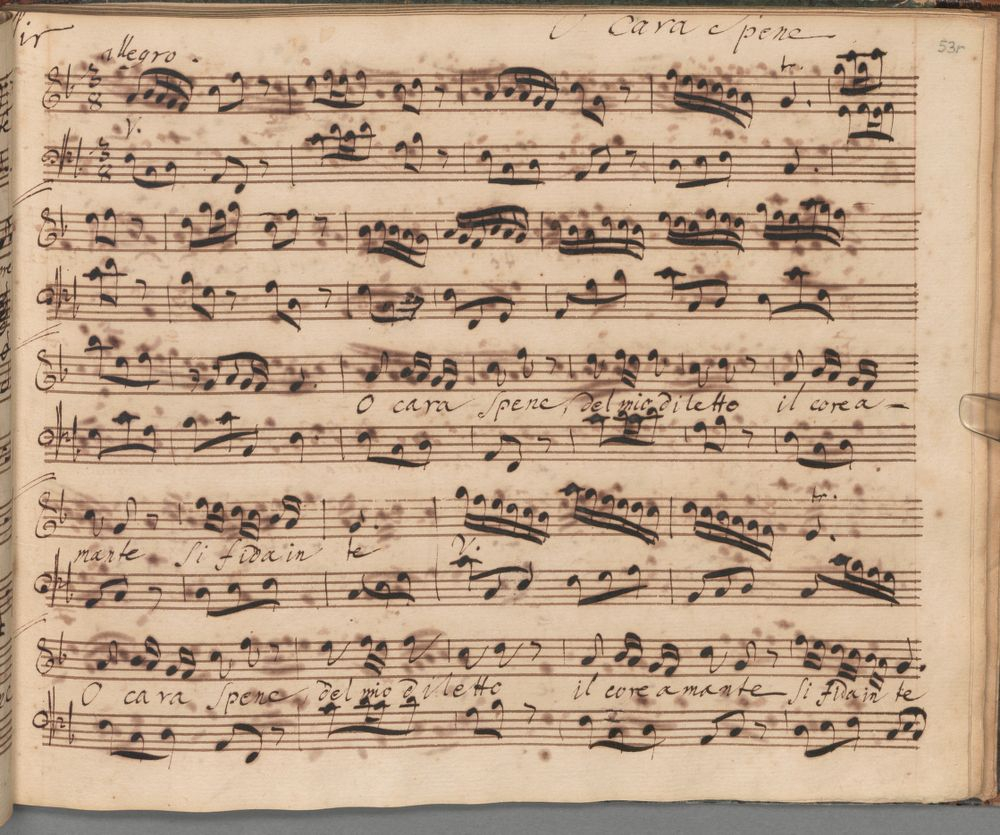 O cara Spene
53r
allegro.
tr.
V.
O cara Spene, del mio diletto il core a-
mante Si fida in te
tr.
V.
O cara Spene, del mio diletto il core amante Si fida in te